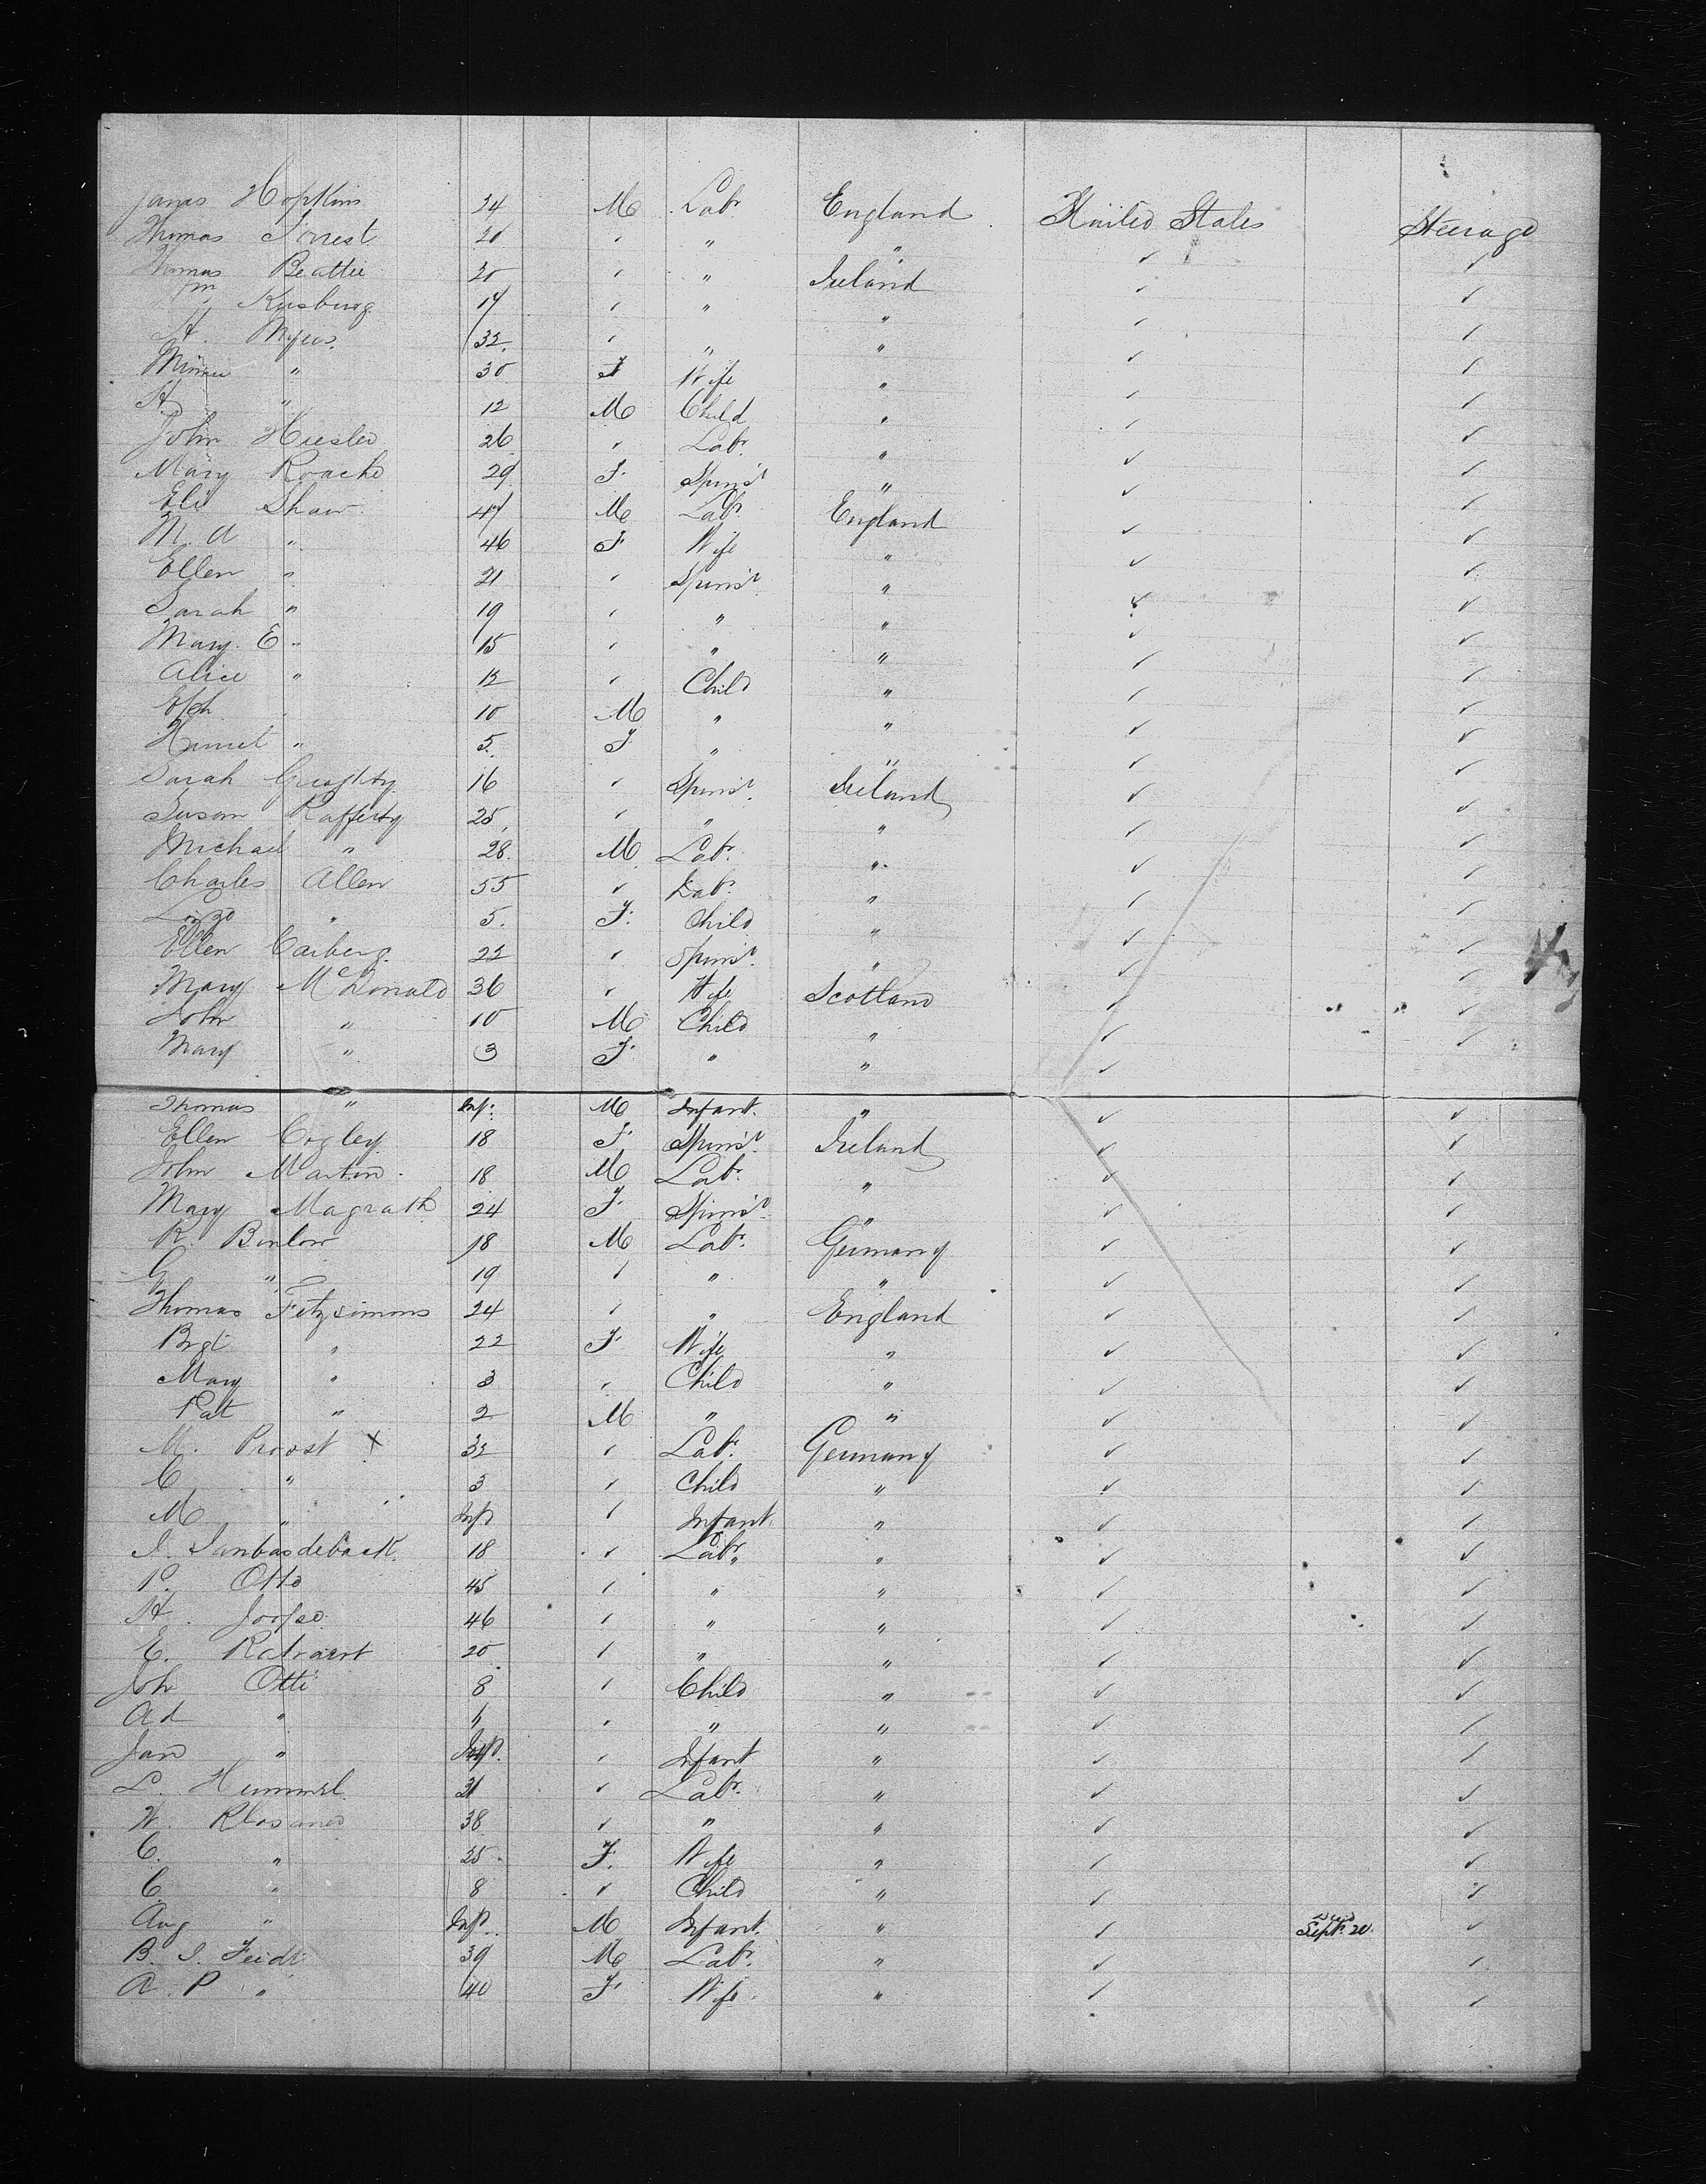 James Hopkins 24 M Labr England United States Steerage
Thomas Forrest 20 " " " " "
Thomas Beattie 20 " " Ireland " "
Wm 17 " " " " "
H. Myers 32 " " " " "
Minnie " 30 F Wife " " "
H " 12 M Child " " "
John 26 " Labr " " "
Mary Roache 29 F Spinsr " " "
Eli Shaw 47 M Labr England " "
M. A " 46 F Wife " " "
Ellen " 21 " Spinsr " " "
Sarah " 19 " " " " "
Mary E " 15 " " " " "
Alice " 12 " Child " " "
Eph " 10 M " " " "
Harriet " 5 F " " " "
Sarah 16 " Spinsr Ireland " "
Susan Rafferty 25 " " " " "
Michael " 28 M Labr " " "
Charles Allen 55 " Labr " " "
" 5 F Child " " "
Ellen Carberg 22 " Spinsr " " "
Mary McDonald 36 " Wife Scotland " "
John " 10 M Child " " "
Mary " 3 F " " " "
Thomas " Inf. M Infant " " "
Ellen Cogley 18 F Spinsr Ireland " "
John Martin 18 M Labr " " "
Mary Magrath 24 F Spinsr " " "
R. Binlow 18 M Labr Germany " "
G " 19 " " " " "
Thomas Fitzsimmons 24 " " England " "
Bgt " 22 F Wife " " "
Mary " 3 " Child " " "
Pat " 2 M " " " "
M. Proost X 32 " Labr Germany " "
C " 3 " Child " " "
M " Inf " Infant " " "
18 " Labr " " "
P. Otto 45 " " " " "
H. 46 " " " " "
E. 20 " " " " "
Joh Otti 8 " Child " " "
Ad " " " " " "
Jan " Inf. " Infant " " "
L. Hummel 31 " Labr " " "
W. 38 " " " " "
C. " 25 F. Wife " " "
C. " 8 " Child " " "
Aug " Inf. M Infant " " Died Sept. 20. "
B. I. Feidt 39 M Labr " " "
A. P " 40 F Wife " " "